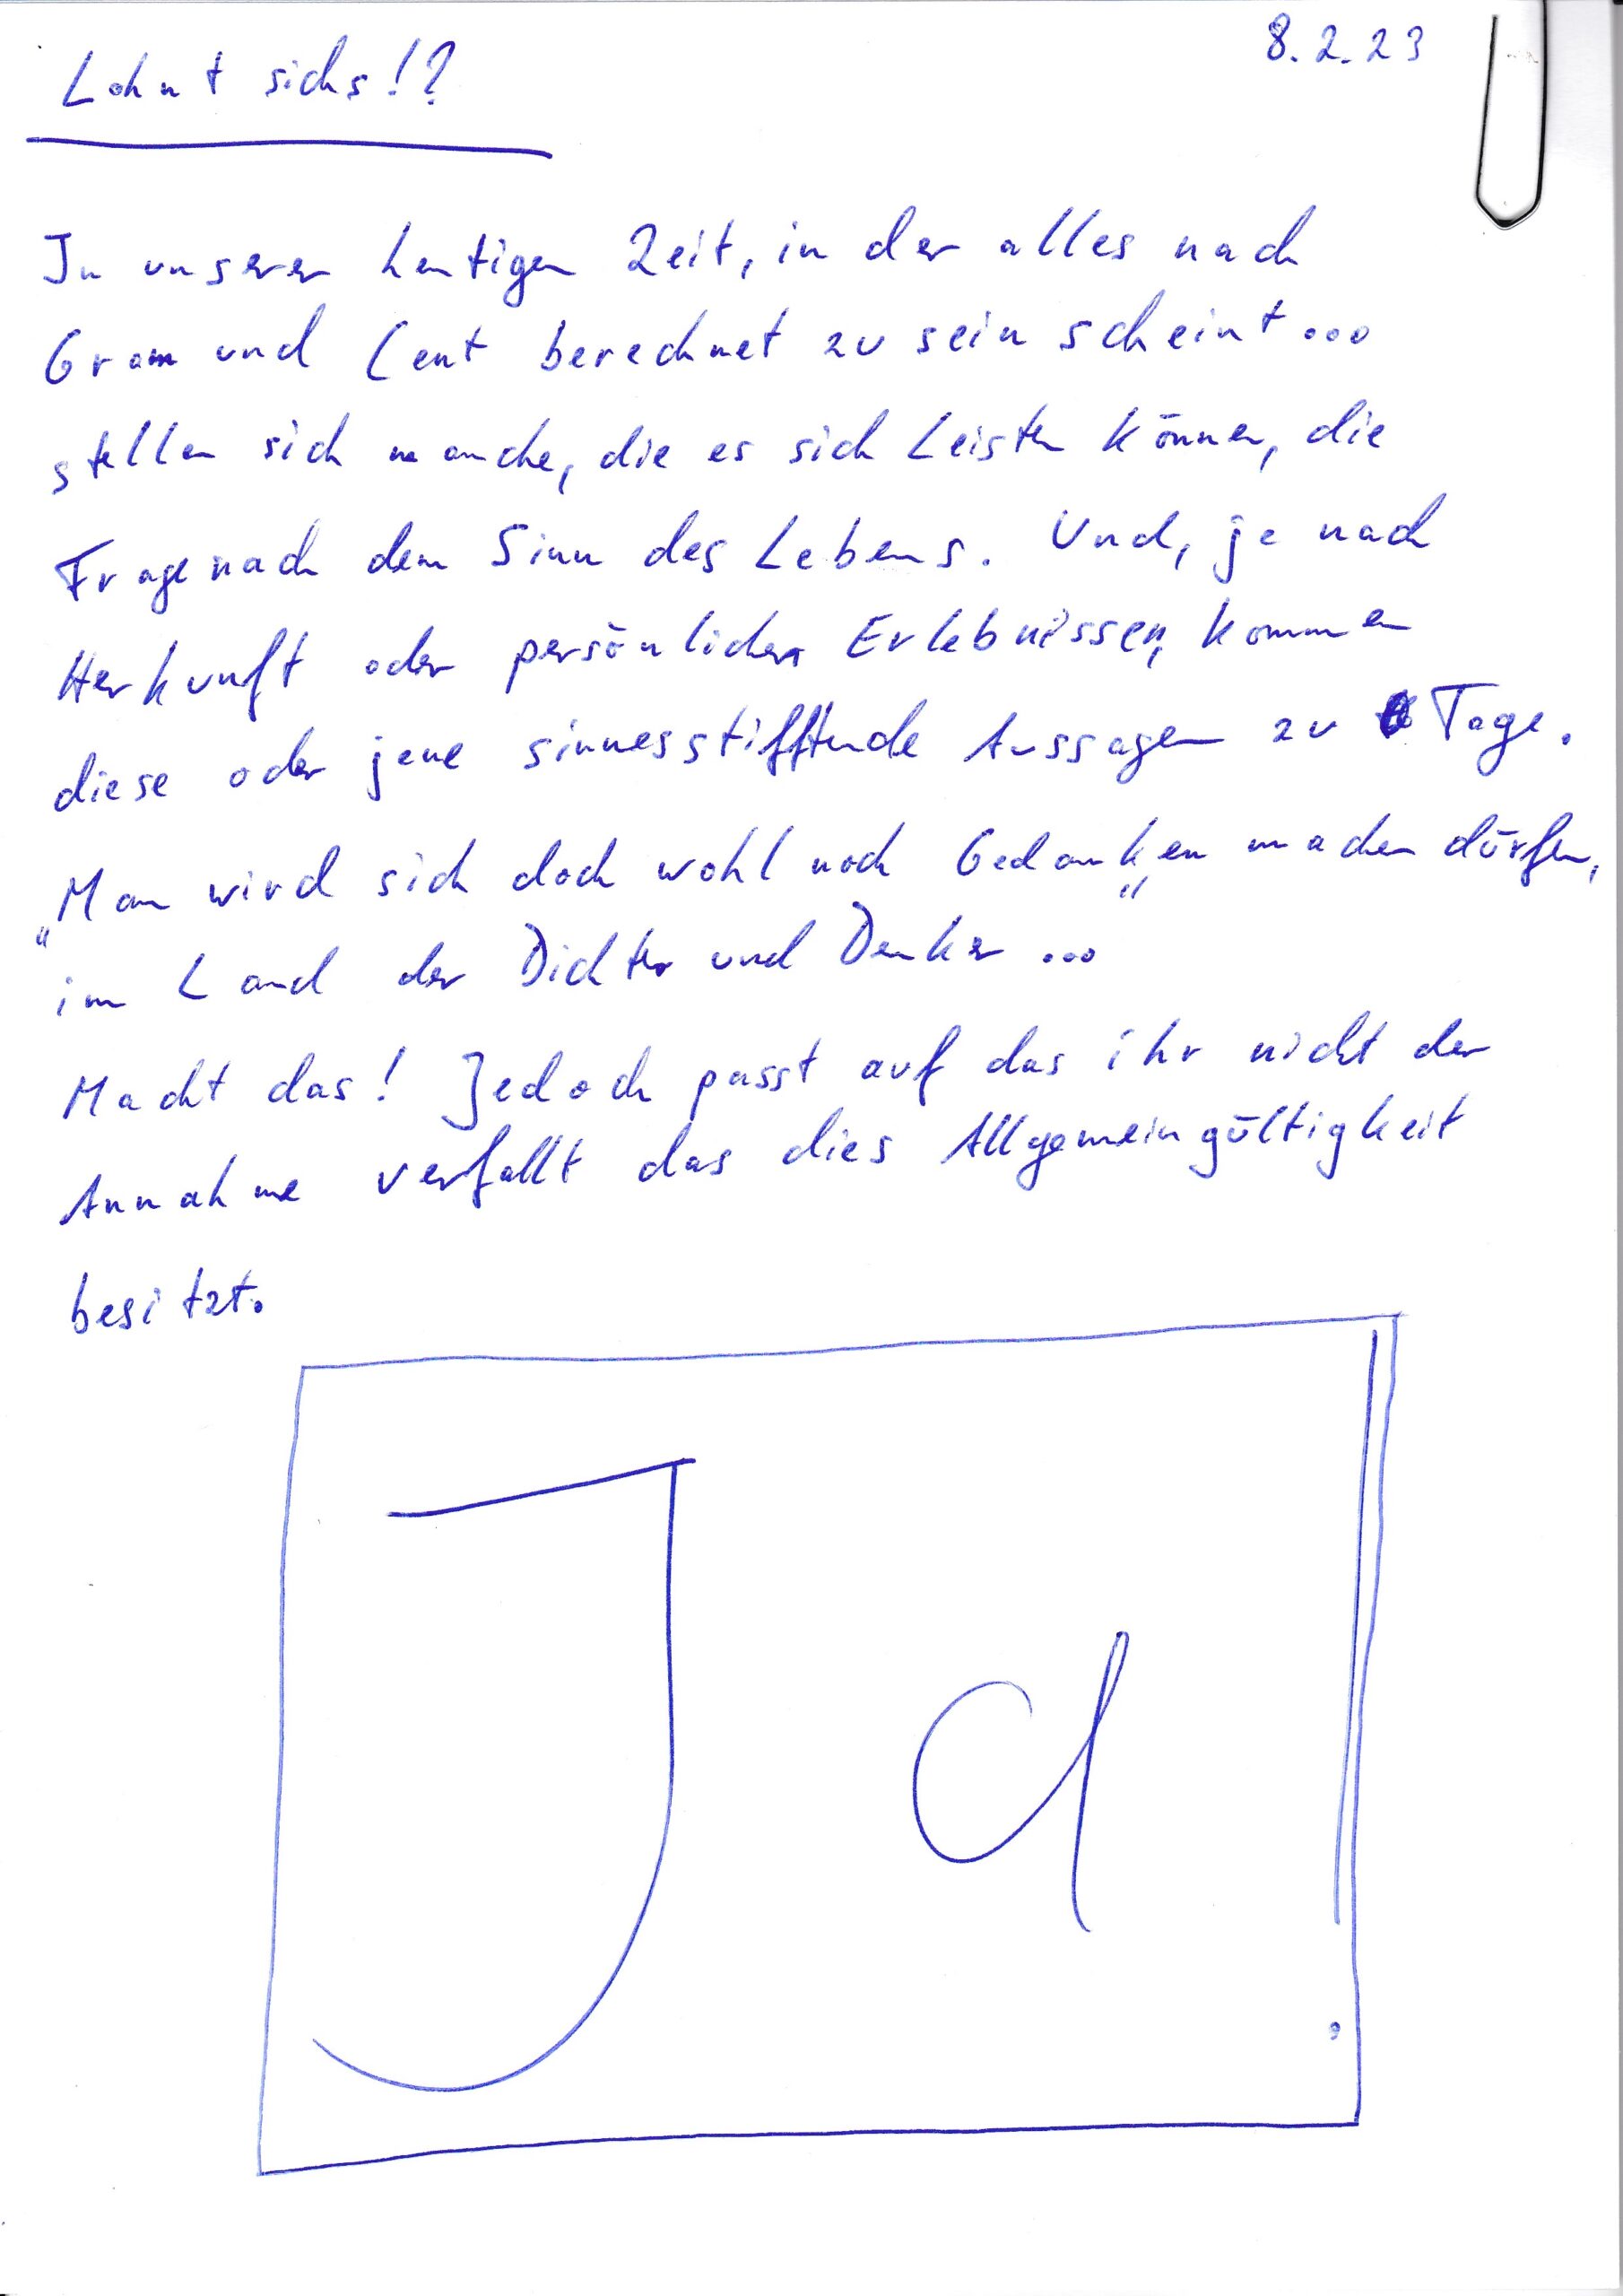 8.2.23
Lohnt sichs!?
In unserer heutigen Zeit, in der alles nach
Gram und Cent berechnet zu sein scheint...
stellen sich manche, die es sich Leisten können, die
Frage nach dem Sinn des Lebens. Und, je nach
Herkunft oder persönlichen Erlebnissen, kommen
diese oder jene sinnesstifftende Aussagen zu Tage.
„Man wird sich doch wohl noch Gedanken machen dürfen,
im Land der Dichter und Denker..."
Macht das! Jedoch passt auf das ihr nicht der
Annahme verfallt das dies Allgemeingültigkeit
besitzt.
Ja!